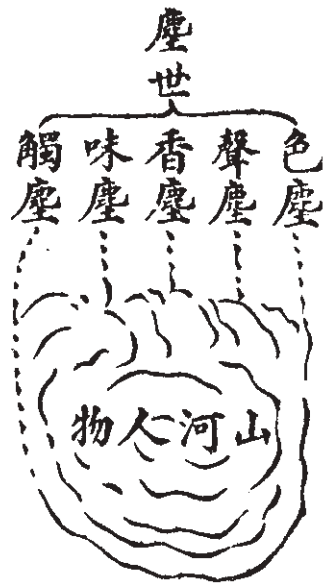 塵世
色塵
聲塵
香塵
味塵
觸塵
山河人物